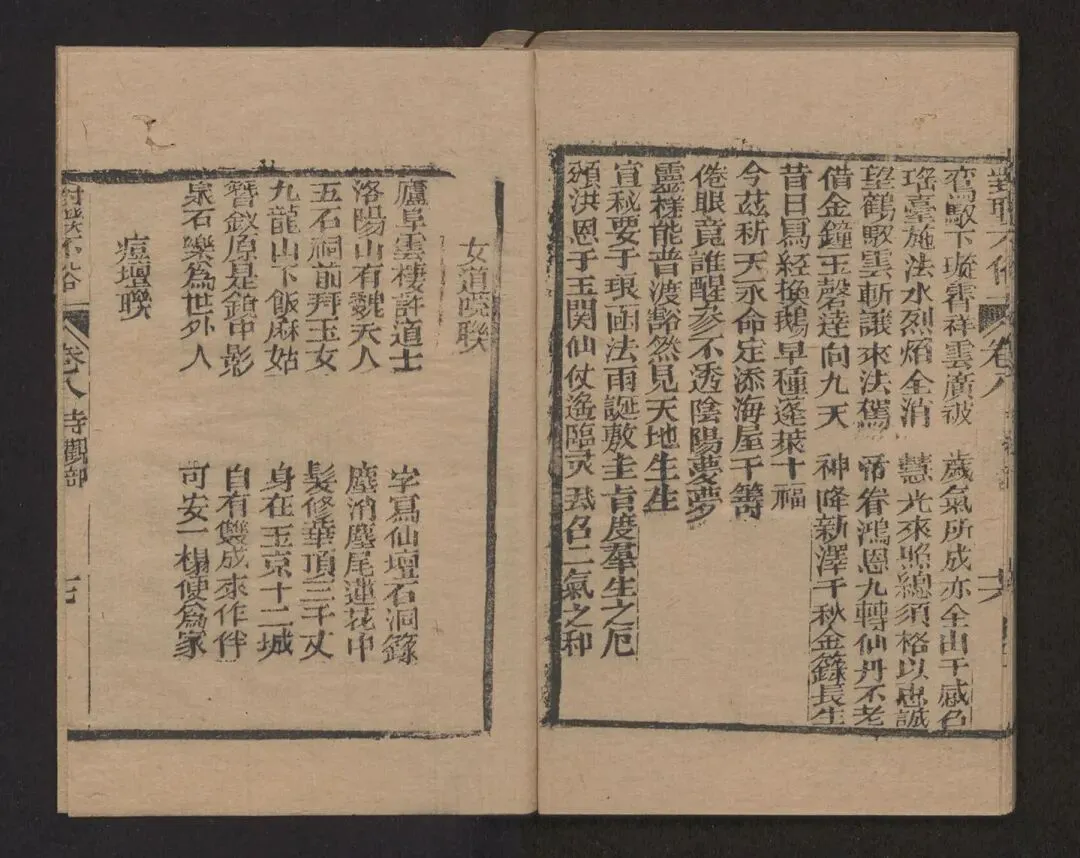 對聯不俗 卷八 十六
鸞馭下璇霄祥雲廣被 歲氣所成亦全由于感召
瑤臺施法水烈熖全消 慧光來照總須格以忠誠
望鶴馭雲斬讓來法駕 帝眷鴻恩九轉仙丹不老
借金鐘玉磬達向九天 神降新澤千秋金籙長生
昔日寫經換鵝早種蓬萊十福
今茲祈天永命定添海屋千籌
倦眼竟誰醒參不透陰陽夢夢
靈機能普渡豁然見天地生生
宣秘要于琅函法雨誕敷圭㫖度羣生之厄
頒洪恩于玉関仙仗遙臨灵 召二氣之和
女道院聯
廬阜雲棲許道士 字寫仙壇石洞籙
洛陽山有魏夫人 塵消麈尾蓮花中
五石洞前拜玉女 髮修華頂三千丈
九龍山下飯麻姑 身在玉京十二城
簪釵原是鏡中影 自有雙成來作伴
泉石樂為世外人 可安一榻便爲家
痘壇聯
對聯不俗 卷八 寺觀部 十七